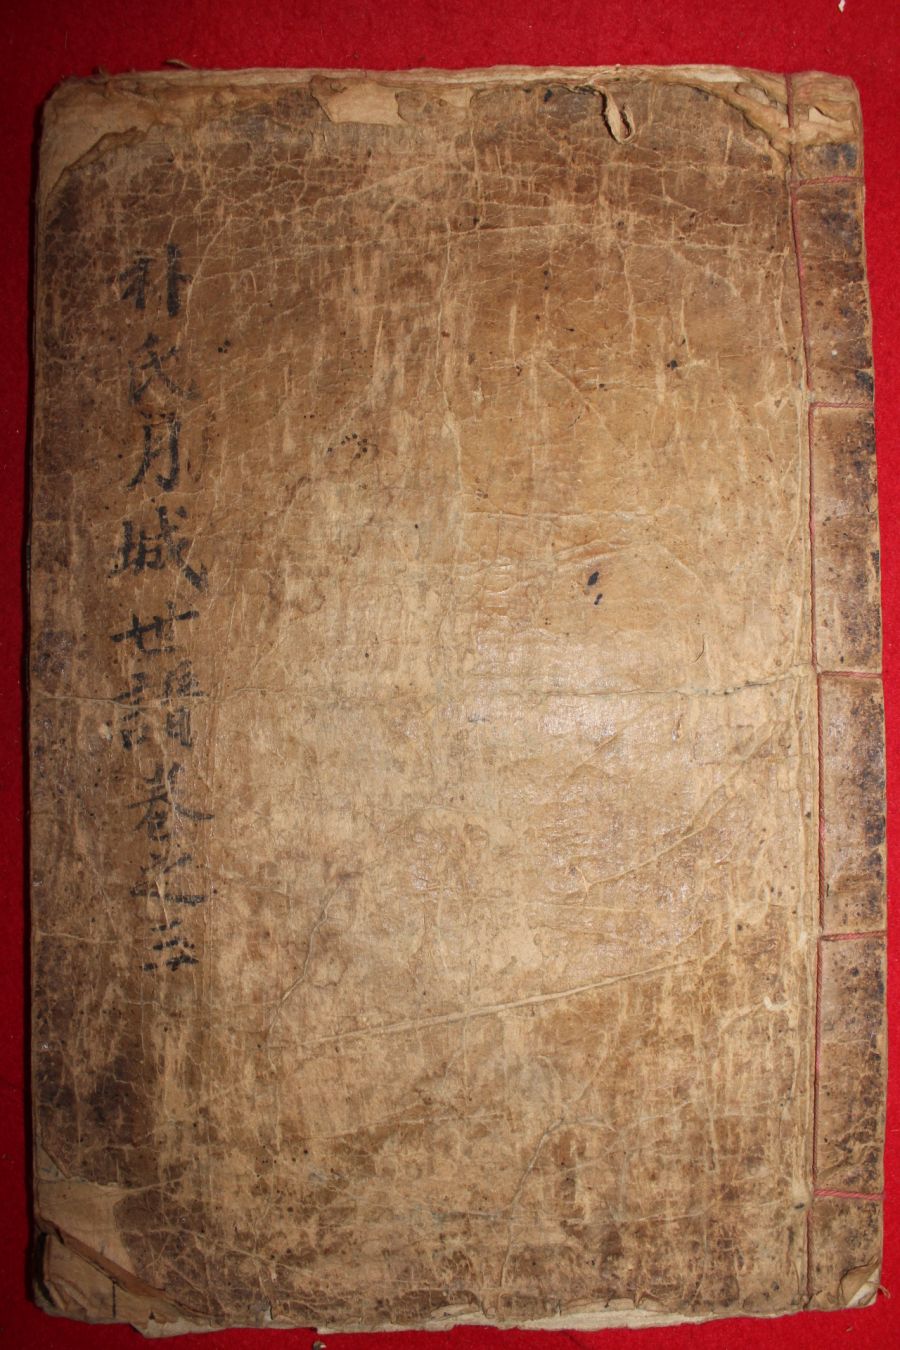 朴氏月城世譜卷之三